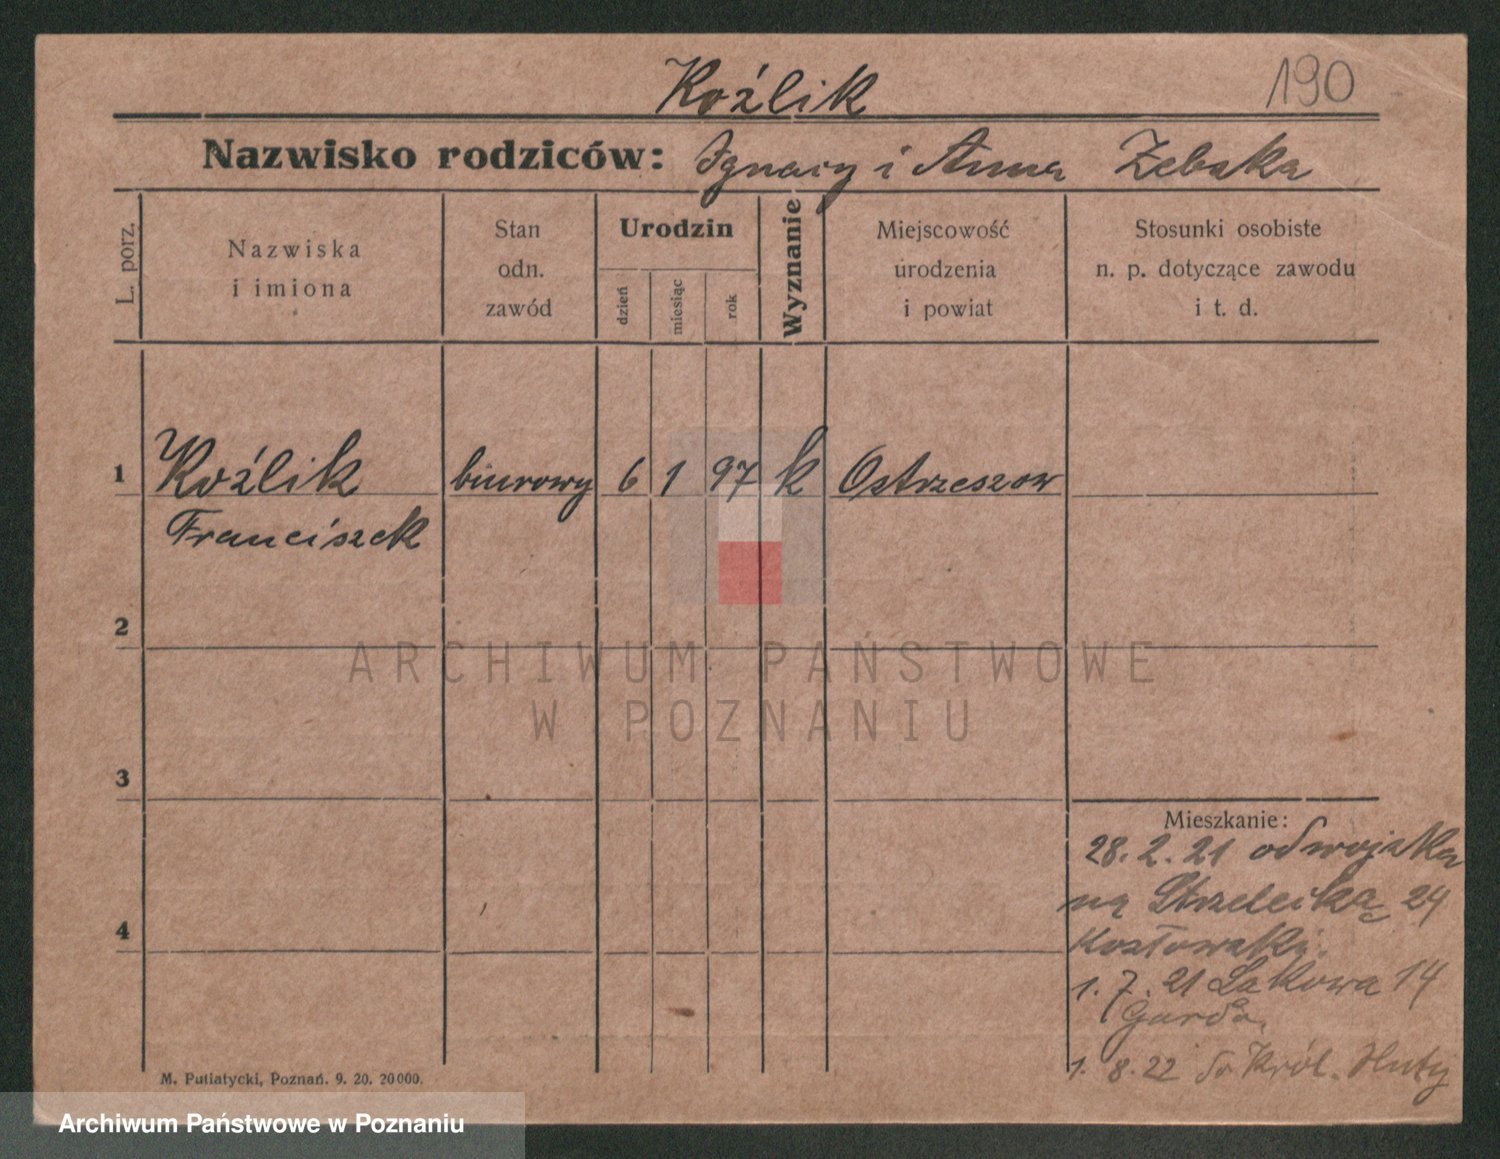 Koźlik
190
Nazwisko rodziców: Ignacy i Anna Zebaka
L. porz.
Nazwiska
i imiona
Stan
odn.
zawód
Urodzin
dzień
miesiąc
rok
Wyznanie
Miejscowość
urodzenia
i powiat
Stosunki osobiste
n. p. dotyczące zawodu
i t. d.
1 Koźlik biurowy 6 1 97 k Ostrzeszow
Franciszek
2
ARCHIWUM PAŃSTWOWE
W POZNANIU
3
Mieszkanie:
28. 2. 21 od wojska
na Strzelecką 24
4
Kozłowski.
1. 7. 21 Łakowa 14
Garda,
1. 8. 22 do Król. Huty
M. Putiatycki, Poznań. 9. 20. 20000.
Archiwum Państwowe w Poznaniu